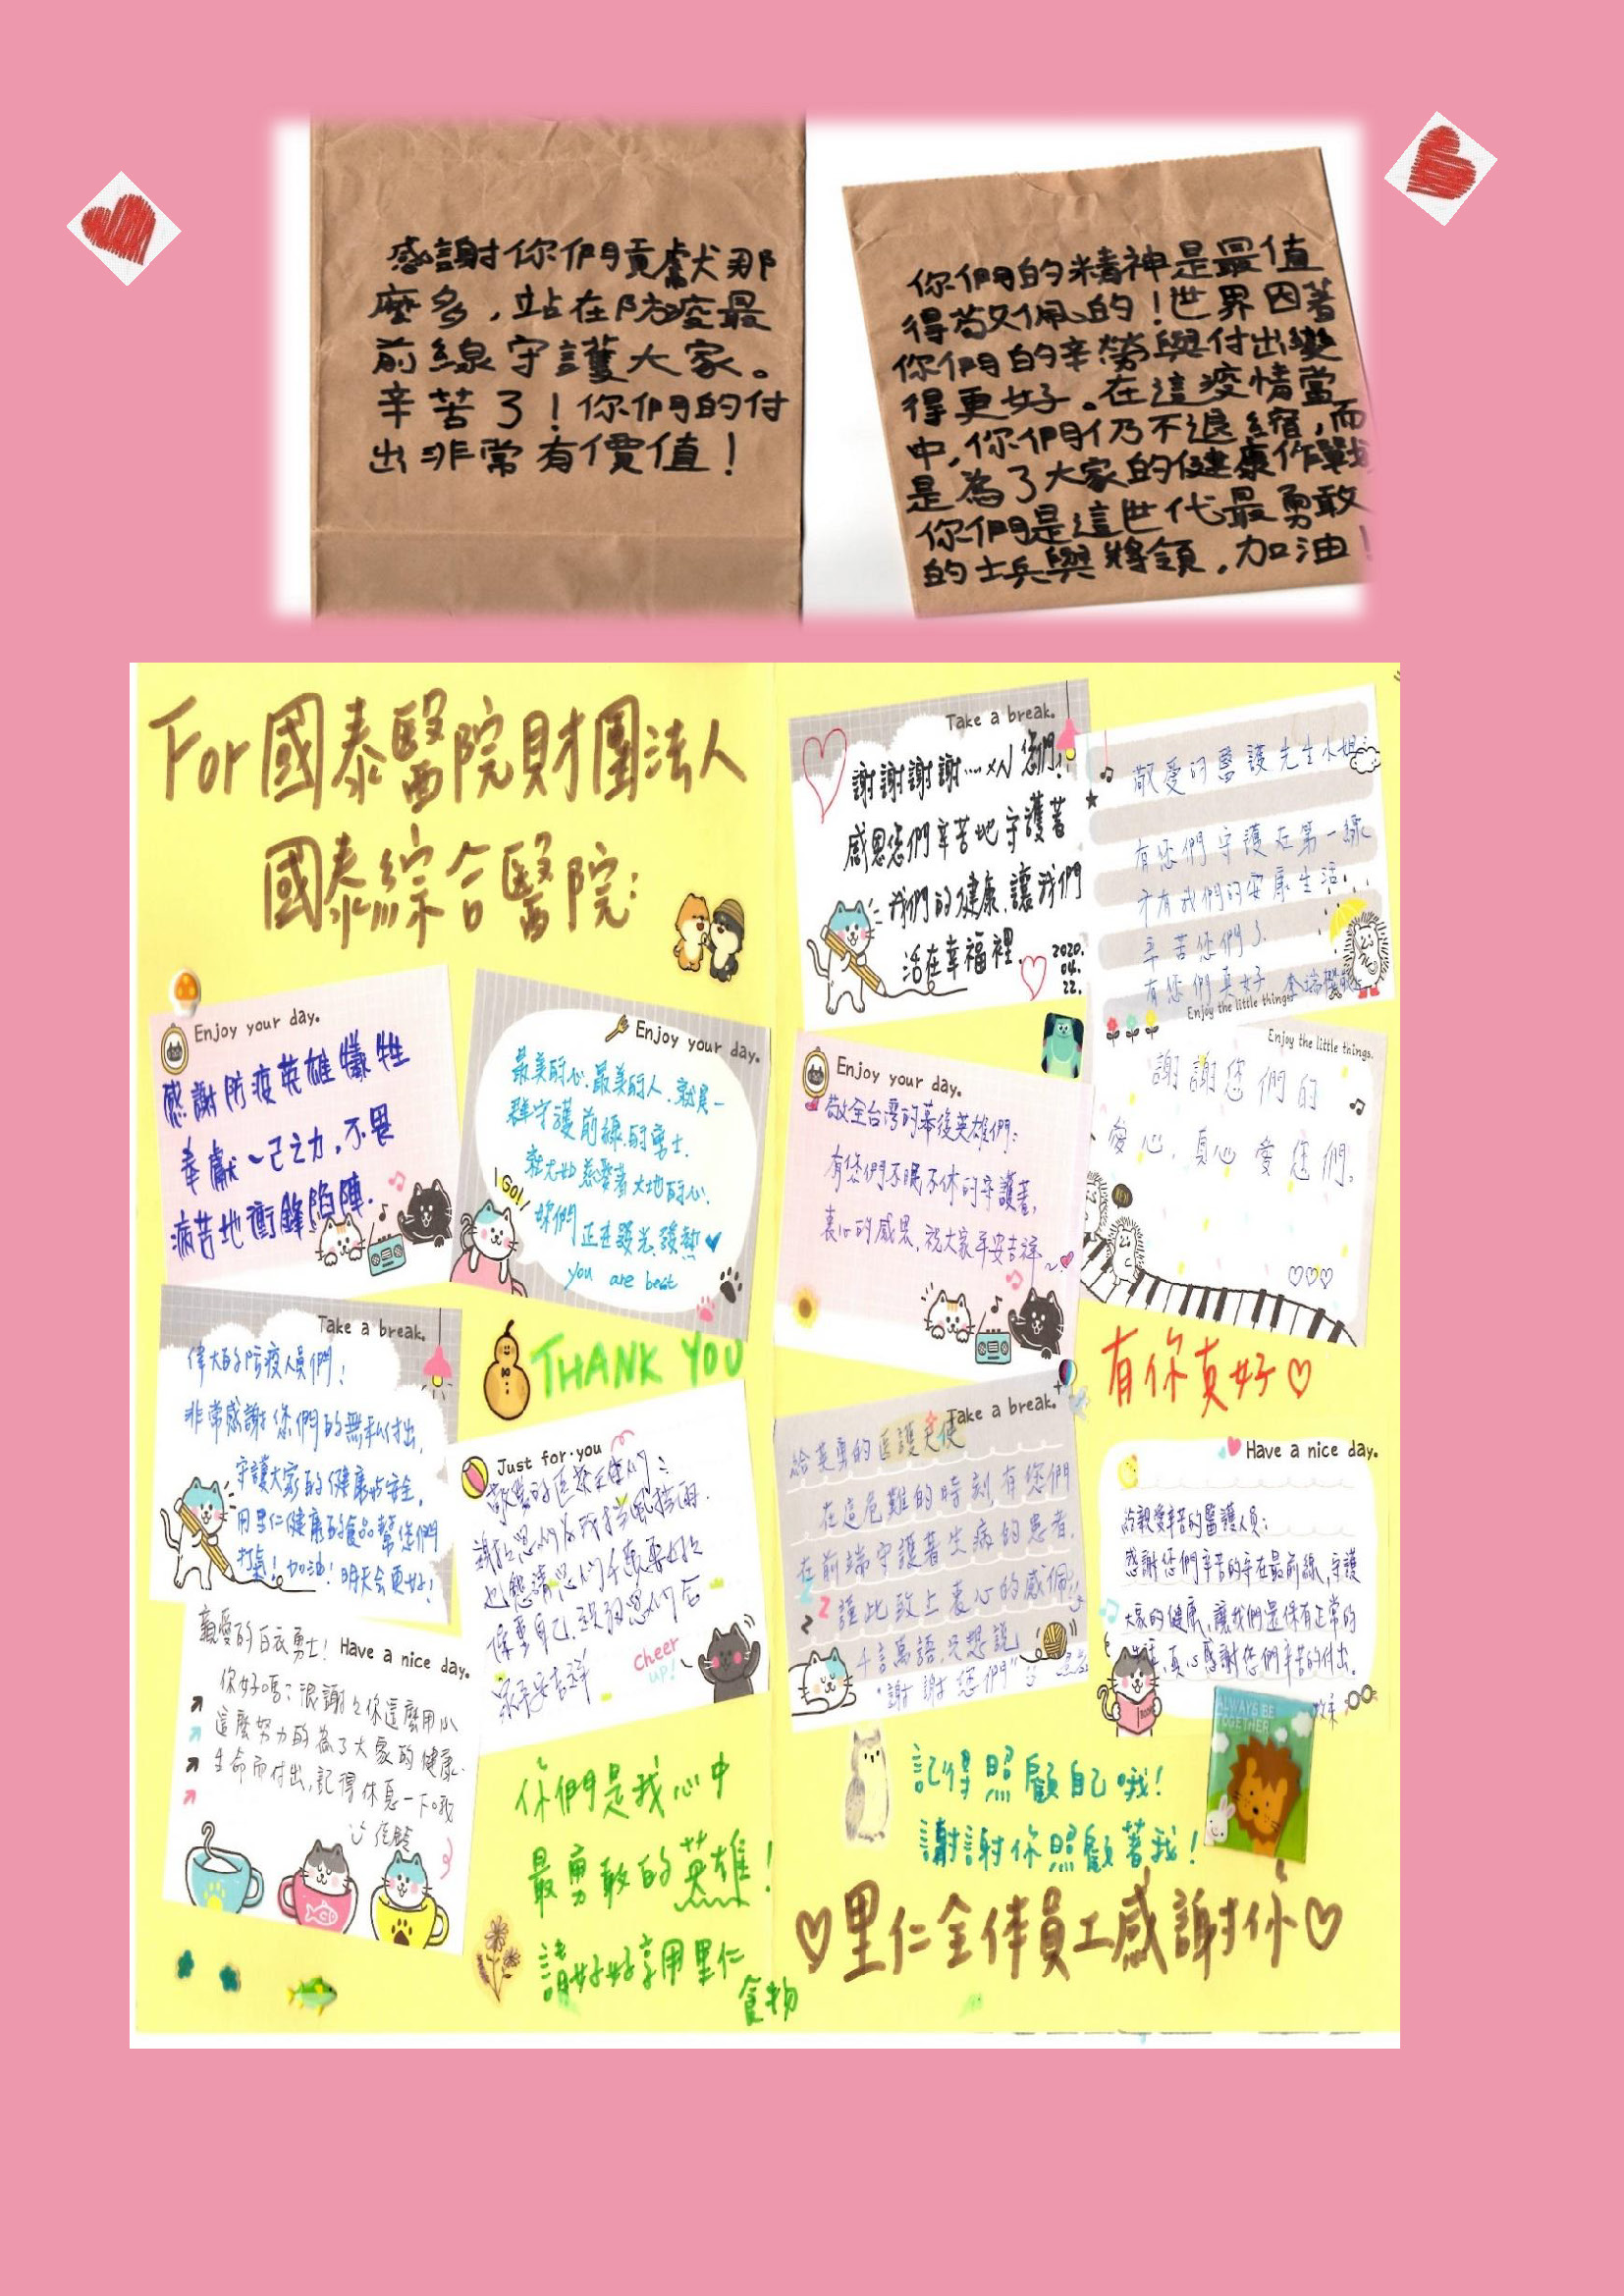 感謝你們貢獻那
麼多，站在防疫最
前線守護大家。
辛苦了！你們的付
出非常有價值！
你們的精神是最值
得敬佩的！世界因著
你們的辛勞與付出變
得更好。在這疫情當
中，你們仍不退縮，而
是為了大家的健康作戰
你們是這世代最勇敢
的士兵與將領，加油！
For 國泰醫院財團法人
國泰綜合醫院：
Enjoy your day.
感謝防疫英雄犧牲
奉獻一己之力，不畏
病苦地衝鋒陷陣.
Enjoy your day.
最美的心.最美的人.就是一
群守護前線的勇士.
就尤如慈愛著大地的心.
妳們正在發光發熱
you are best
Go!
Take a break.
偉大的防疫人員們：
非常感謝您們的無私付出,
守護大家的健康與安全,
用里仁健康的食品幫您們
打氣！加油！明天會更好！
THANK YOU
Just for you
敬愛的医療天使们：
謝謝您们為我擋風擋雨.
也懇請您们千萬要好好
保重自己.祝福您们合
家平安吉祥
cheer up!
親愛的白衣勇士！
Have a nice day.
你好嗎？很謝謝你這麼用心
這麼努力的為了大家的健康.
生命而付出,記得休息一下哦
你們是我心中
最勇敢的英雄！
請好好享用里仁
食物
Take a break.
謝謝謝謝…×N 您們！
感恩您們辛苦地守護著
我們的健康,讓我們
活在幸福裡.
2020.
04.
22.
敬愛的醫護先生小姐：
有您們守護在第一線
才有我們的安康生活...
辛苦您們了.
有您們真好.
Enjoy the little things.
Enjoy your day.
敬全台灣的幕後英雄們：
有您們不眠不休的守護著,
衷心的感恩,祝大家平安吉祥~
Enjoy the little things.
謝謝您們的
愛心,真心愛您們。
有你真好♡
Take a break.
給英勇的医護天使
在這危難的時刻,有您們
在前端守護著生病的患者,
謹此致上衷心的感佩
千言萬語,只想說
"謝謝您們"
Have a nice day.
給親愛辛苦的醫護人員：
感謝您們辛苦的守在最前線,守護
大家的健康,讓我們還保有正常的
生活,真心感謝您們辛苦的付出.
ALWAYS BE
TOGETHER
記得照顧自己哦！
謝謝你照顧著我！
♡里仁全体員工感謝你♡